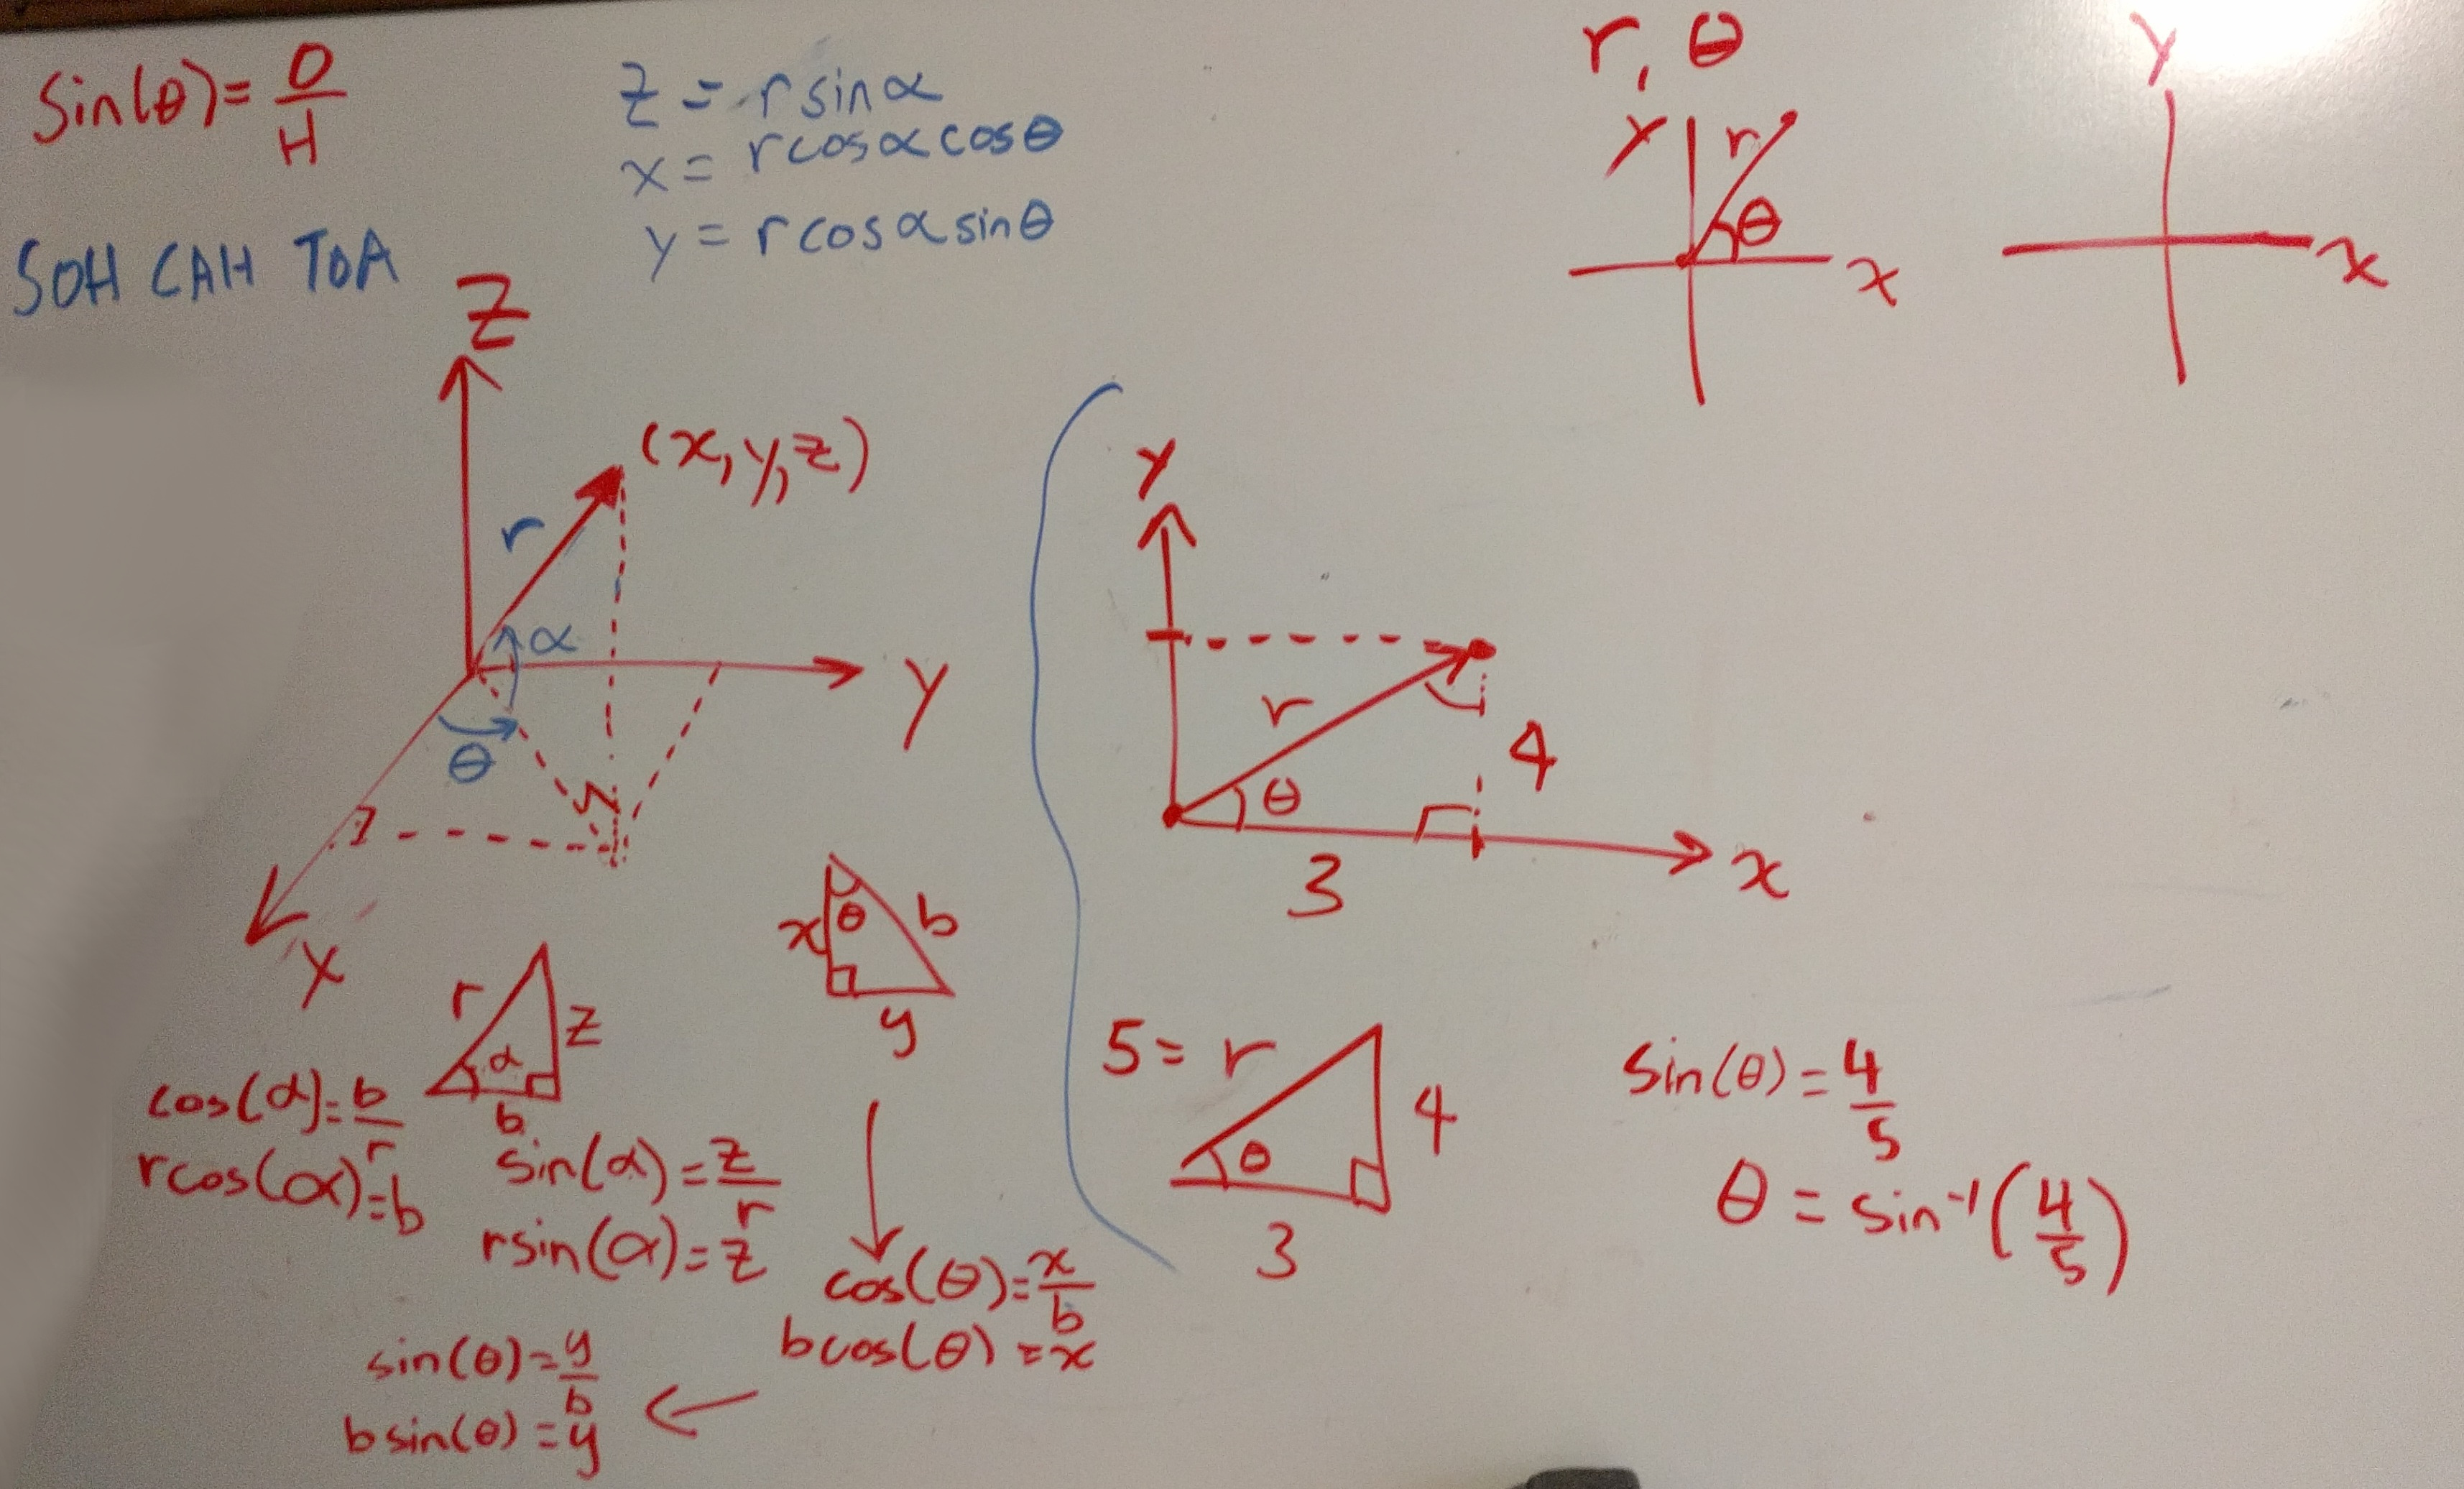 Sin(θ) = O/H
SOH CAH TOA
z = r sin α
x = r cos α cos θ
y = r cos α sin θ
r, θ
y
r
θ
x
y
x
Z
(x, y, z)
r
α
y
θ
x
r
z
α
b
x
θ
b
y
cos(α) = b/r
r cos(α) = b
sin(α) = z/r
r sin(α) = z
cos(θ) = x/b
b cos(θ) = x
sin(θ) = y/b
b sin(θ) = y
y
r
4
θ
3
x
5 = r
4
θ
3
sin(θ) = 4/5
θ = sin⁻¹(4/5)